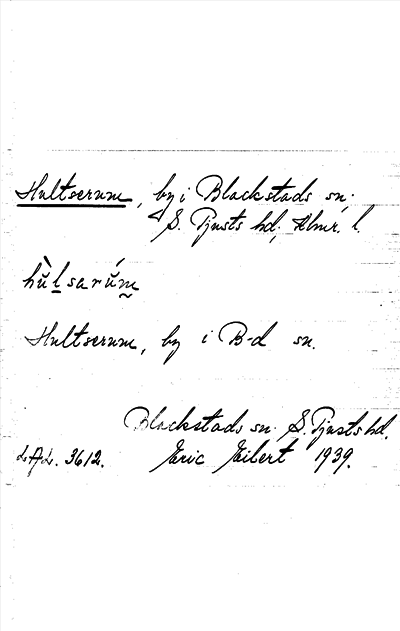 Hultserum, by i Blackstads sn.
S. Tjusts hd, Klmr. l.
hùlsarúm
Hultserum, by i B-d sn.
Blackstads sn. S. Tjusts hd.
LAL. 3612. Eric Eilert 1939.